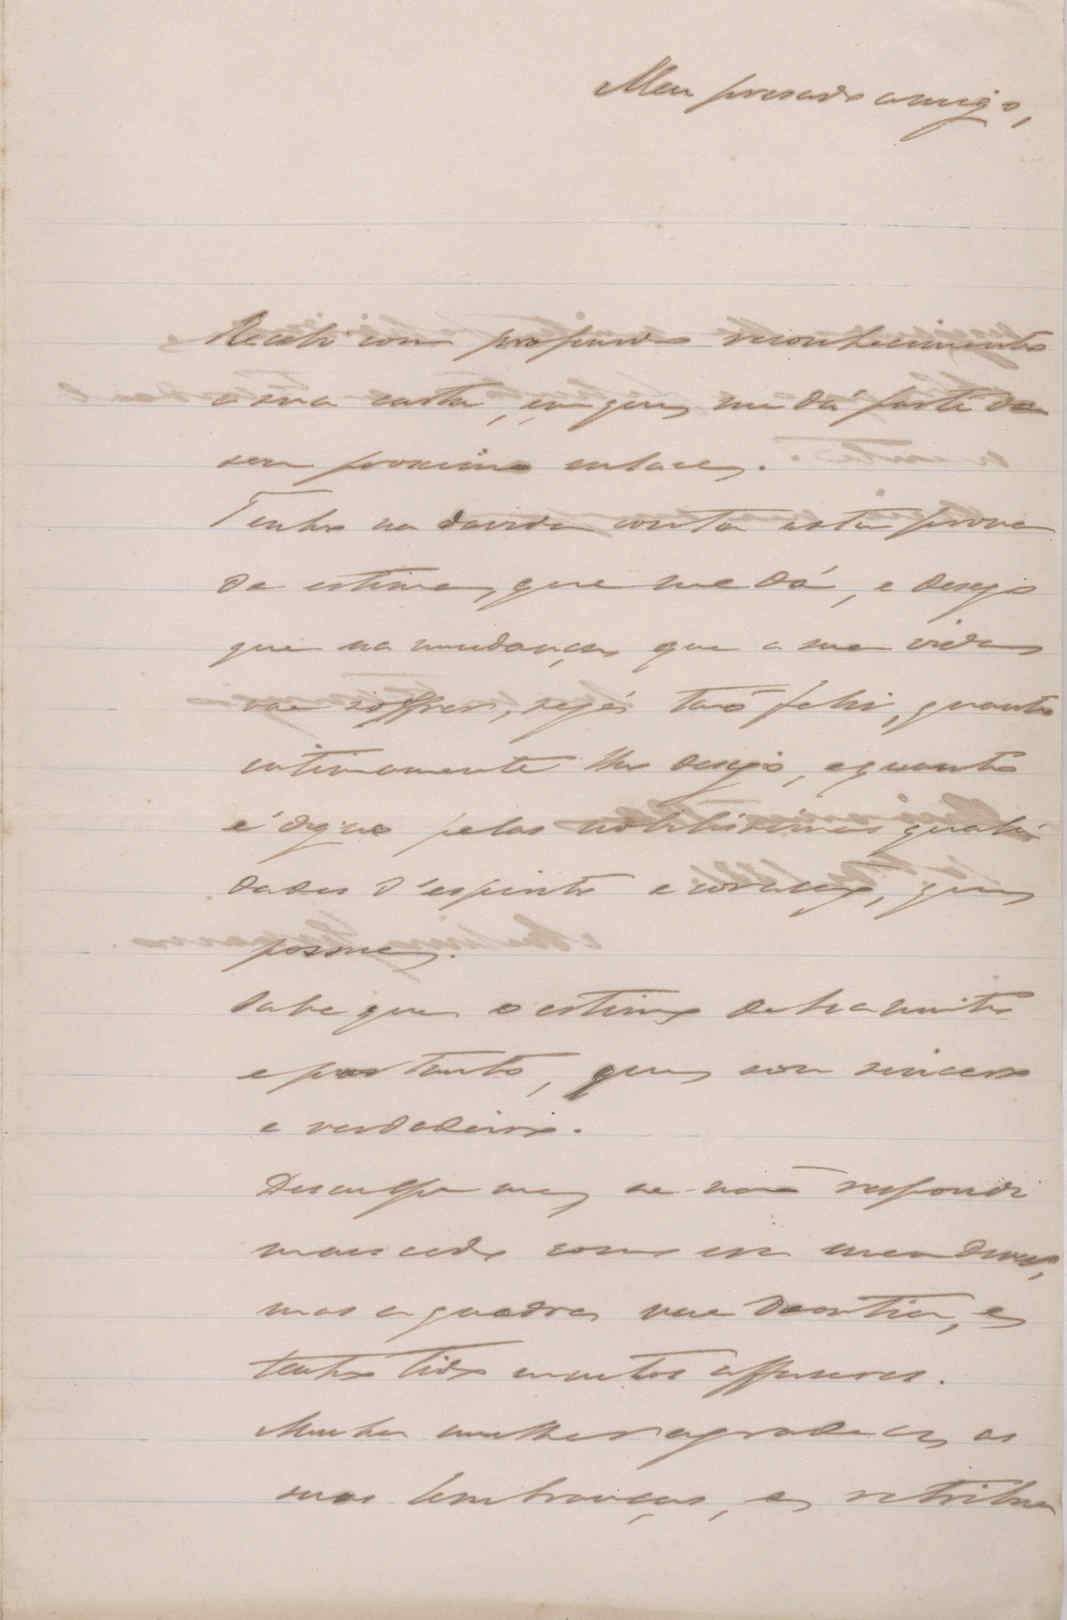 Meu presado amigo,
Recebi com profundo reconhecimento
a sua carta, em que me dá parte do
seu proximo enlace.
Tenho na devida conta esta prova
de estima, que me dá, e desejo
que na mudança que a sua vida
vae soffrer, seja tão feliz, quanto
intimamente lhe desejo, e quanto
é digno pelas nobilissimas quali
dades d'espirito e coração, que
possue.
Sabe que o estimo de ha muito
e portanto, que sou sincero
e verdadeiro.
Desculpe me se não respondi
mais cedo como era meu dever,
mas a quadra vae doentia, e
tenho tido muitos affazeres.
Minha mulher agradece as
suas lembranças, e retribue